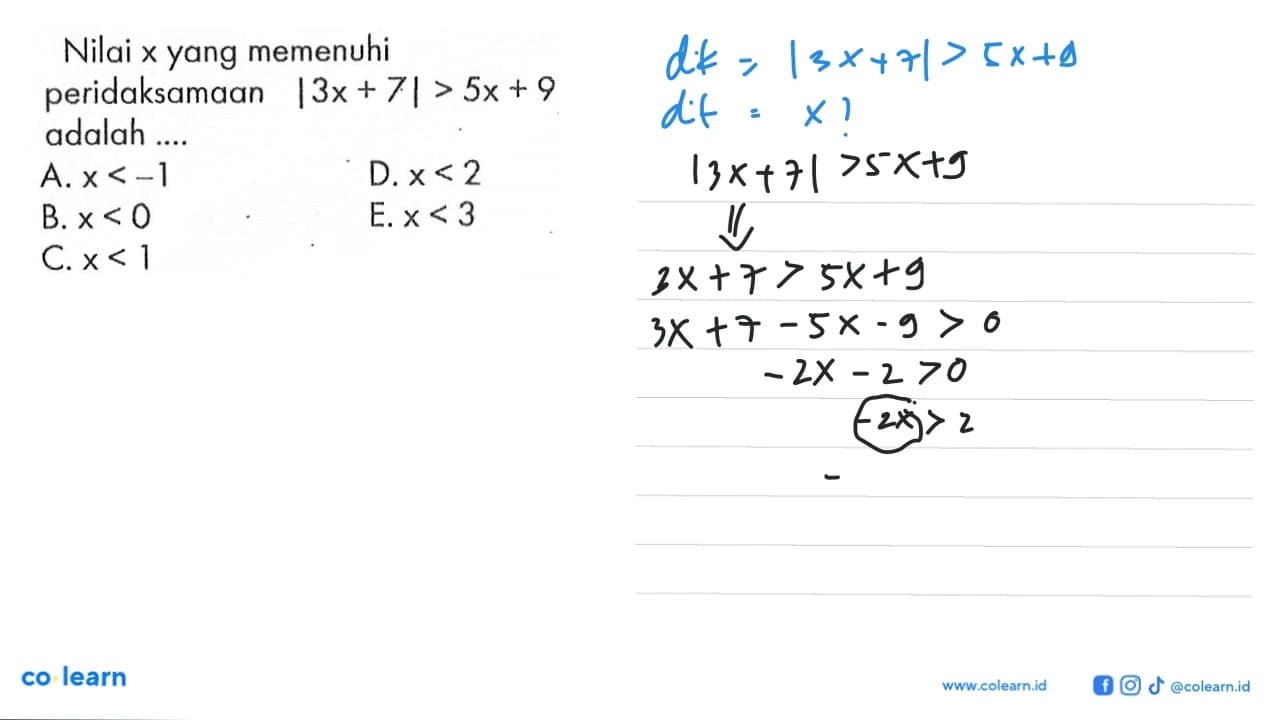 Nilai x yang memenuhi
peridaksamaan |3x + 7| > 5x + 9
adalah ....
A. x < -1
B. x < 0
C. x < 1
D. x < 2
E. x < 3
dik = |3x+7| > 5x+9
dit = x?
|3x+7| >5x+9
⇓
3x+7 > 5x+9
3x+7-5x-9 > 0
-2x - 2 >0
-2x > 2
-
co learn
www.colearn.id
@colearn.id